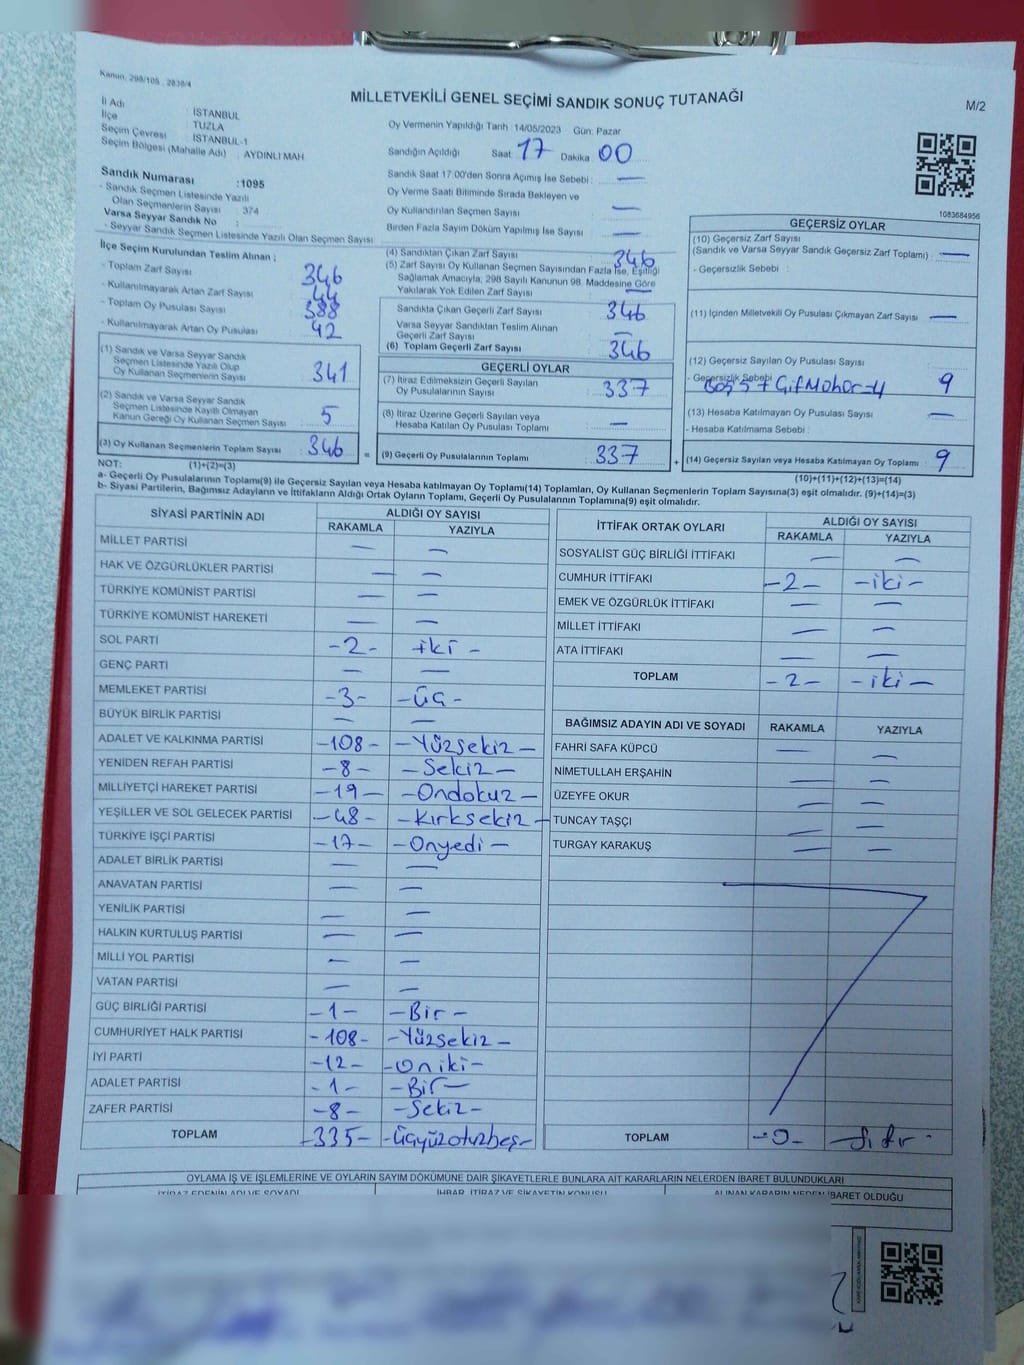 Kanun, 298/105 , 2839/4
MİLLETVEKİLİ GENEL SEÇİMİ SANDIK SONUÇ TUTANAĞI
M/2
İl Adı : İSTANBUL
İlçe : TUZLA
Seçim Çevresi : İSTANBUL-1
Seçim Bölgesi (Mahalle Adı) : AYDINLI MAH
Oy Vermenin Yapıldığı Tarih :14/05/2023 Gün: Pazar
Sandığın Açıldığı Saat 17 Dakika 00
Sandık Saat 17.00'den Sonra Açımış İse Sebebi : —
Oy Verme Saati Bitiminde Sırada Bekleyen ve
Oy Kullandırılan Seçmen Sayısı —
Birden Fazla Sayım Döküm Yapılmış İse Sayısı —
1083684956
Sandık Numarası :1095
- Sandık Seçmen Listesinde Yazılı
Olan Seçmenlerin Sayısı : 374
Varsa Seyyar Sandık No :
- Seyyar Sandık Seçmen Listesinde Yazılı Olan Seçmen Sayısı
İlçe Seçim Kurulundan Teslim Alınan ;
- Toplam Zarf Sayısı 346
- Kullanılmayarak Artan Zarf Sayısı 44
- Toplam Oy Pusulası Sayısı 388
- Kullanılmayarak Artan Oy Pusulası 42
(1) Sandık ve Varsa Seyyar Sandık
Seçmen Listesinde Yazılı Olup
Oy Kullanan Seçmenlerin Sayısı 341
(2) Sandık ve Varsa Seyyar Sandık
Seçmen Listesinde Kayıtlı Olmayan
Kanun Gereği Oy Kullanan Seçmen Sayısı 5
(3) Oy Kullanan Seçmenlerin Toplam Sayısı 346
(4) Sandıktan Çıkan Zarf Sayısı 346
(5) Zarf Sayısı Oy Kullanan Seçmen Sayısından Fazla İse, Eşitliği
Sağlamak Amacıyla, 298 Sayılı Kanunun 98. Maddesine Göre
Yakılarak Yok Edilen Zarf Sayısı —
Sandıkta Çıkan Geçerli Zarf Sayısı 346
Varsa Seyyar Sandıktan Teslim Alınan
Geçerli Zarf Sayısı —
(6) Toplam Geçerli Zarf Sayısı 346
GEÇERLİ OYLAR
(7) İtiraz Edilmeksizin Geçerli Sayılan
Oy Pusulalarının Sayısı 337
(8) İtiraz Üzerine Geçerli Sayılan veya
Hesaba Katılan Oy Pusulası Toplamı —
= (9) Geçerli Oy Pusulalarının Toplamı 337 +
GEÇERSİZ OYLAR
(10) Geçersiz Zarf Sayısı
(Sandık ve Varsa Seyyar Sandık Geçersiz Zarf Toplamı) : —
- Geçersizlik Sebebi :
(11) İçinden Milletvekili Oy Pusulası Çıkmayan Zarf Sayısı —
(12) Geçersiz Sayılan Oy Pusulası Sayısı
- Geçersizlik Sebebi : Boş 5 + Çif Mohor - 4 9
(13) Hesaba Katılmayan Oy Pusulası Sayısı —
- Hesaba Katılmama Sebebi :
(14) Geçersiz Sayılan veya Hesaba Katılmayan Oy Toplamı 9
NOT: (1)+(2)=(3)
(10)+(11)+(12)+(13)=(14)
a- Geçerli Oy Pusulalarının Toplamı(9) ile Geçersiz Sayılan veya Hesaba katılmayan Oy Toplamı(14) Toplamları, Oy Kullanan Seçmenlerin Toplam Sayısına(3) eşit olmalıdır. (9)+(14)=(3)
b- Siyasi Partilerin, Bağımsız Adayların ve İttifakların Aldığı Ortak Oyların Toplamı, Geçerli Oy Pusulalarının Toplamına(9) eşit olmalıdır.
SİYASİ PARTİNİN ADI ALDIĞI OY SAYISI
RAKAMLA YAZIYLA
MİLLET PARTİSİ — —
HAK VE ÖZGÜRLÜKLER PARTİSİ — —
TÜRKİYE KOMÜNİST PARTİSİ — —
TÜRKİYE KOMÜNİST HAREKETİ — —
SOL PARTİ -2- iki -
GENÇ PARTİ — —
MEMLEKET PARTİSİ -3- -üç-
BÜYÜK BİRLİK PARTİSİ — —
ADALET VE KALKINMA PARTİSİ -108- -Yüzsekiz-
YENİDEN REFAH PARTİSİ -8- -Sekiz-
MİLLİYETÇİ HAREKET PARTİSİ -19- -Ondokuz-
YEŞİLLER VE SOL GELECEK PARTİSİ -48- -Kırksekiz-
TÜRKİYE İŞÇİ PARTİSİ -17- -Onyedi-
ADALET BİRLİK PARTİSİ — —
ANAVATAN PARTİSİ — —
YENİLİK PARTİSİ — —
HALKIN KURTULUŞ PARTİSİ — —
MİLLİ YOL PARTİSİ — —
VATAN PARTİSİ — —
GÜÇ BİRLİĞİ PARTİSİ -1- -Bir-
CUMHURİYET HALK PARTİSİ -108- -Yüzsekiz-
İYİ PARTİ -12- -Oniki-
ADALET PARTİSİ -1- -Bir-
ZAFER PARTİSİ -8- -Sekiz-
TOPLAM -335- -üçyüzotuzbeş-
İTTİFAK ORTAK OYLARI ALDIĞI OY SAYISI
RAKAMLA YAZIYLA
SOSYALİST GÜÇ BİRLİĞİ İTTİFAKI — —
CUMHUR İTTİFAKI -2- -iki-
EMEK VE ÖZGÜRLÜK İTTİFAKI — —
MİLLET İTTİFAKI — —
ATA İTTİFAKI — —
TOPLAM -2- -iki-
BAĞIMSIZ ADAYIN ADI VE SOYADI RAKAMLA YAZIYLA
FAHRİ SAFA KÜPCÜ — —
NİMETULLAH ERŞAHİN — —
ÜZEYFE OKUR — —
TUNCAY TAŞÇI — —
TURGAY KARAKUŞ — —
TOPLAM -0- -Sıfır-
OYLAMA İŞ VE İŞLEMLERİNE VE OYLARIN SAYIM DÖKÜMÜNE DAİR ŞİKAYETLERLE BUNLARA AİT KARARLARIN NELERDEN İBARET BULUNDUKLARI
İTİRAZ EDENİN ADI VE SOYADI İHBAR, İTİRAZ VE ŞİKAYETİN KONUSU ALINAN KARARIN NEDEN İBARET OLDUĞU